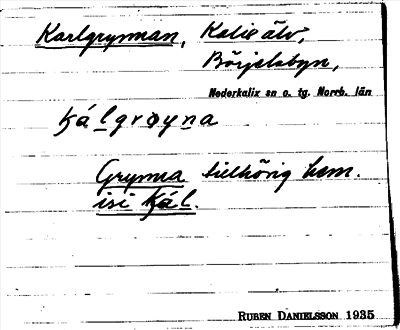 Karlgrynnan, Kalix älv,
Börjelsbyn,
Nederkalix sn o. tg. Norrb. län
kálgrøyna
Grynna tillhörig hem.
isi kál.
RUBEN DANIELSSON 1935